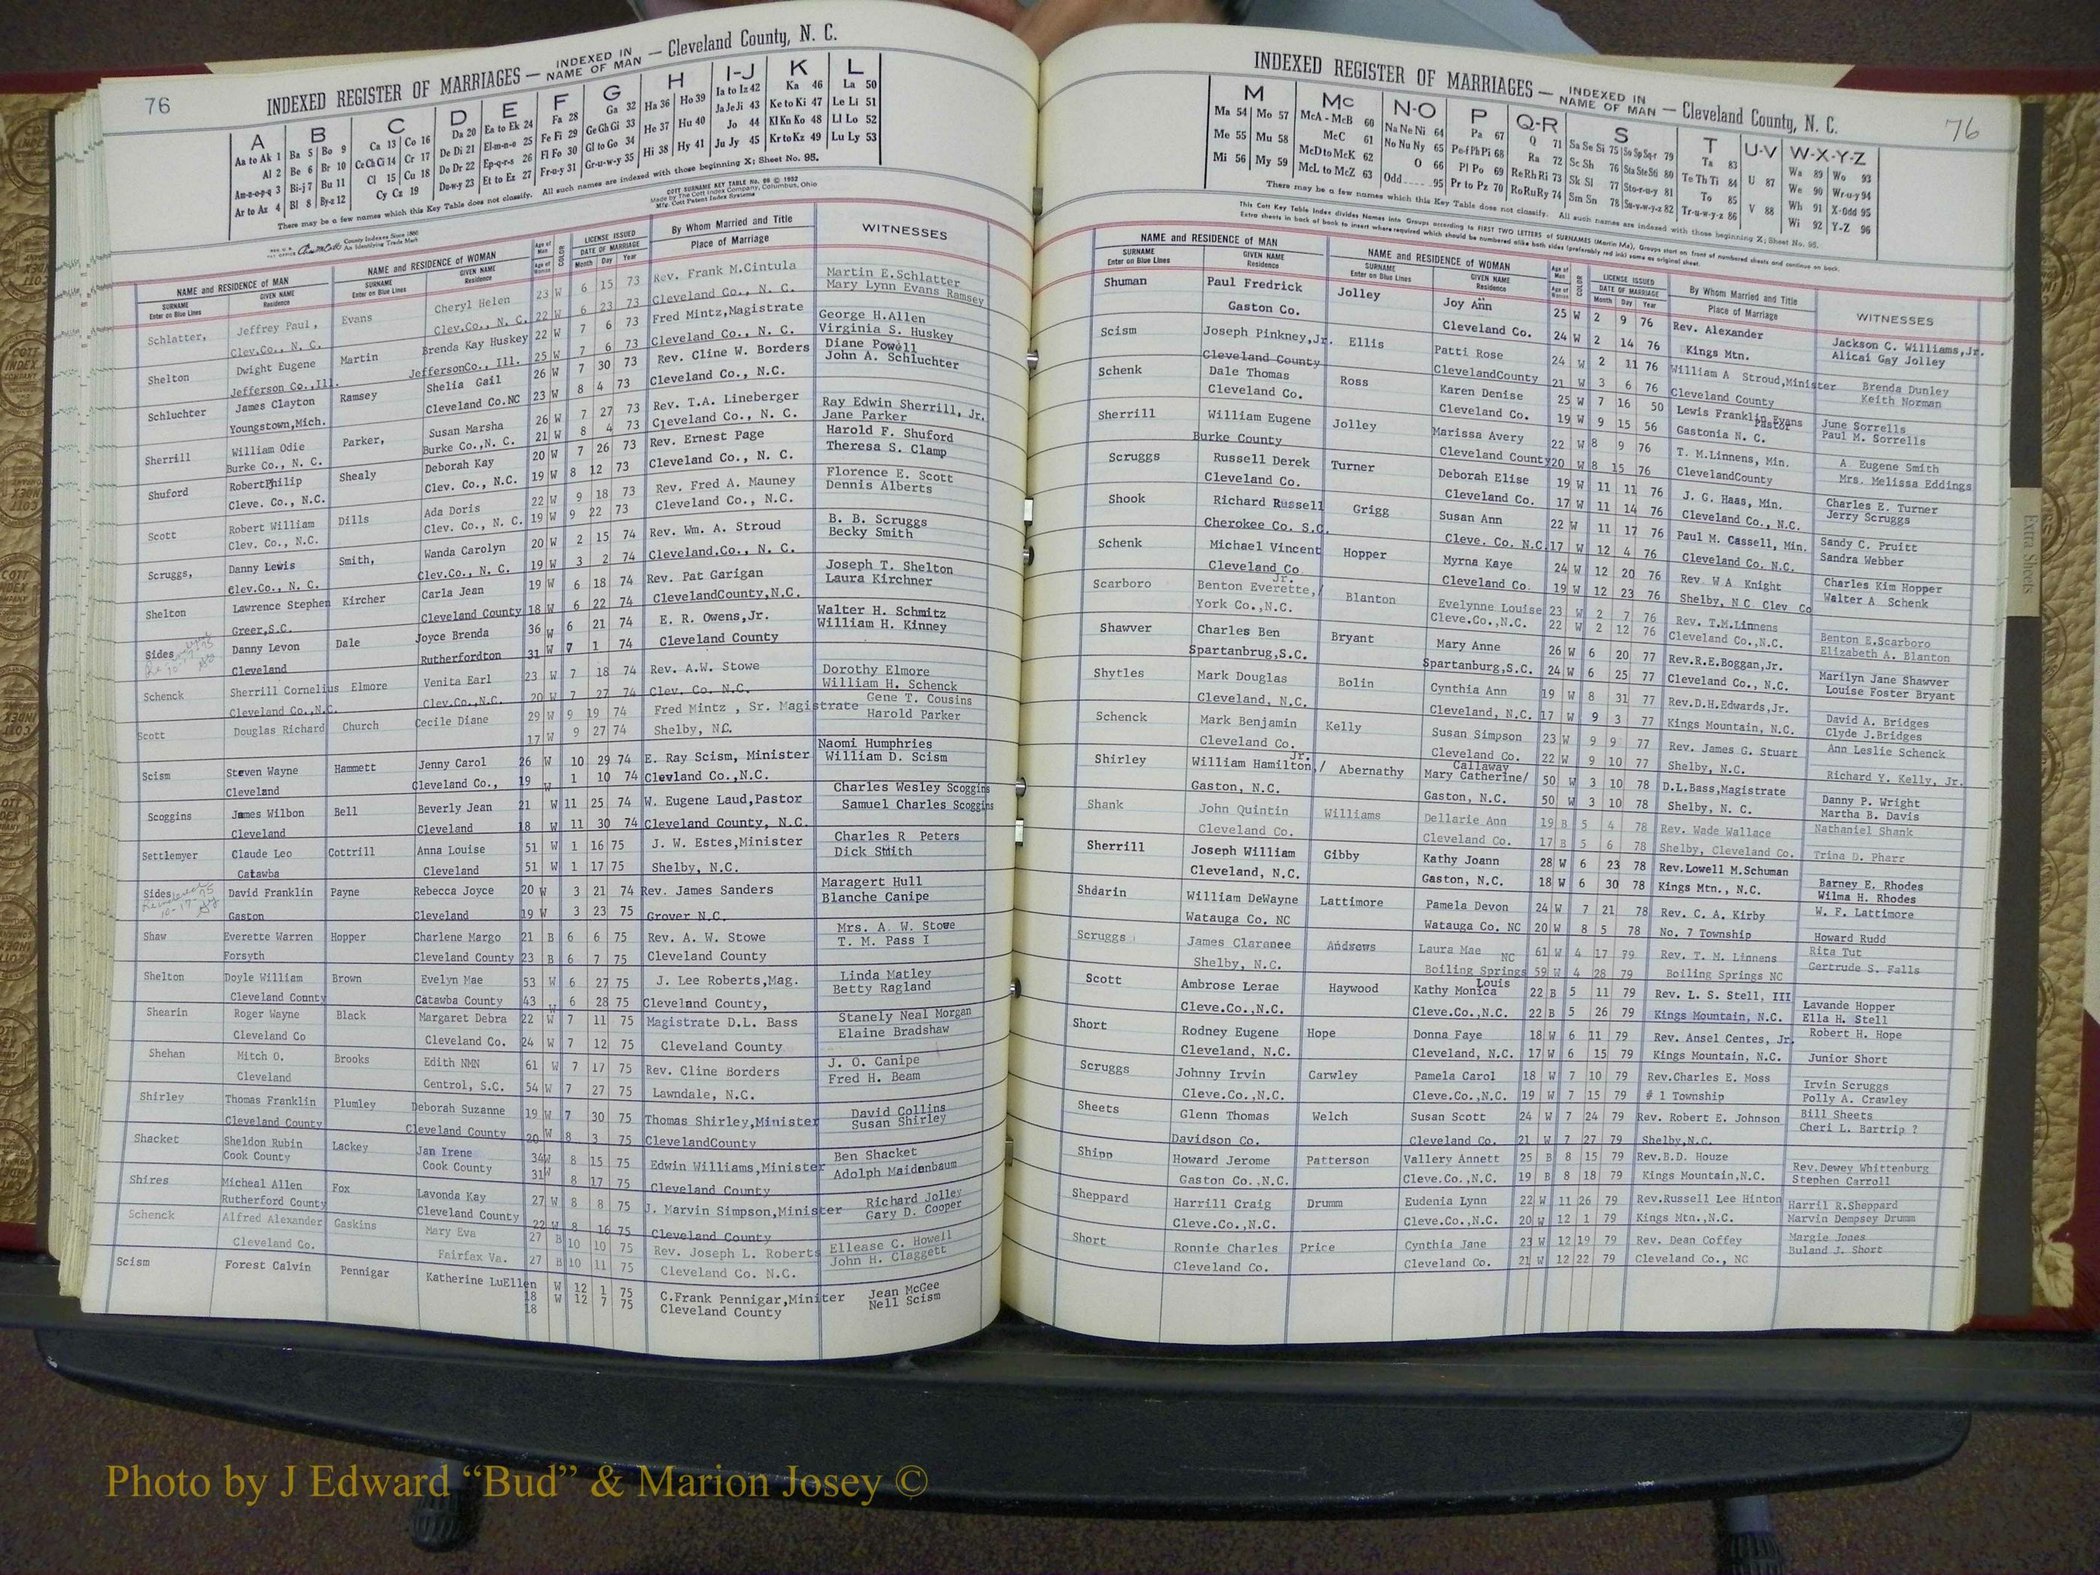 76
INDEXED REGISTER OF MARRIAGES — INDEXED IN NAME OF MAN — Cleveland County, N. C.
A B C D E F G H I-J K L
Aa to Ak 1 Ba 5 Bo 9 Ca 13 Co 16 Da 20 Ea to Ek 24 Fa 28 Ga 32 Ha 36 Ho 39 Ia to Iz 42 Ka 46 La 50
Al 2 Be 6 Br 10 Ce Ch Ci 14 Cr 17 De Di 21 El-m-n-o 25 Fe Fi 29 Ge Gh Gi 33 He 37 Hu 40 Ja Je Ji 43 Ke to Ki 47 Le Li 51
Am-n-o-p-q 3 Bi-j 7 Bu 11 Cl 15 Cu 18 Do Dr 22 Ep-q-r-s 26 Fl Fo 30 Gl to Go 34 Hi 38 Hy 41 Jo 44 Kl Kn Ko 48 Ll Lo 52
Ar to Az 4 Bl 8 By-z 12 Cy Cz 19 Du-w-y 23 Et to Ez 27 Fr-u-y 31 Gr-u-w-y 35 Ju Jy 45 Kr to Kz 49 Lu Ly 53
There may be a few names which this Key Table does not classify. All such names are indexed with those beginning X; Sheet No. 95.
COTT SURNAME KEY TABLE No. 96 © 1932
Made by The Cott Index Company, Columbus, Ohio
Mfg. Cott Patent Index Systems
County Indexes Since 1888
An Identifying Trade Mark
NAME and RESIDENCE OF MAN NAME and RESIDENCE OF WOMAN Age of Man COLOR LICENSE ISSUED By Whom Married and Title WITNESSES
SURNAME Enter on Blue Lines GIVEN NAME Residence SURNAME Enter on Blue Lines GIVEN NAME Residence Age of Woman DATE OF MARRIAGE Month Day Year Place of Marriage
Schlatter, Jeffrey Paul, Evans Cheryl Helen 23 W 6 15 73 Rev. Frank M.Cintula Martin E.Schlatter
Clev.Co., N. C. Clev.Co., N. C. 22 W 6 23 73 Cleveland Co., N. C. Mary Lynn Evans Ramsey
Shelton Dwight Eugene Martin Brenda Kay Huskey 22 W 7 6 73 Fred Mintz,Magistrate George H.Allen
Jefferson Co.,Ill. JeffersonCo., Ill. 25 W 7 6 73 Cleveland Co., N. C. Virginia S. Huskey
Schluchter James Clayton Ramsey Shelia Gail 26 W 7 30 73 Rev. Cline W. Borders Diane Powell
Youngstown,Mich. Cleveland Co.NC 23 W 8 4 73 Cleveland Co., N.C. John A. Schluchter
Sherrill William Odie Parker, Susan Marsha 26 W 7 27 73 Rev. T.A. Lineberger Ray Edwin Sherrill, Jr.
Burke Co., N. C. Burke Co.,N. C. 21 W 8 4 73 Cleveland Co., N. C. Jane Parker
Shuford RobertPhilip Shealy Deborah Kay 20 W 7 26 73 Rev. Ernest Page Harold F. Shuford
Cleve. Co., N.C. Clev. Co., N.C. 19 W 8 12 73 Cleveland Co., N. C. Theresa S. Clamp
Scott Robert William Dills Ada Doris 22 W 9 18 73 Rev. Fred A. Mauney Florence E. Scott
Clev. Co., N.C. Clev. Co., N. C. 19 W 9 22 73 Cleveland Co., N.C. Dennis Alberts
Scruggs, Danny Lewis Smith, Wanda Carolyn 20 W 2 15 74 Rev. Wm. A. Stroud B. B. Scruggs
Clev.Co., N. C. Clev.Co., N. C. 19 W 3 2 74 Cleveland.Co., N. C. Becky Smith
Shelton Lawrence Stephen Kircher Carla Jean 19 W 6 18 74 Rev. Pat Garigan Joseph T. Shelton
Greer,S.C. Cleveland County 18 W 6 22 74 ClevelandCounty,N.C. Laura Kirchner
Sides Danny Levon Dale Joyce Brenda 36 W 6 21 74 E. R. Owens,Jr. Walter H. Schmitz
Cleveland Rutherfordton 31 W 7 1 74 Cleveland County William H. Kinney
Schenck Sherrill Cornelius Elmore Venita Earl 23 W 7 18 74 Rev. A.W. Stowe Dorothy Elmore
Cleveland Co.,N.C. Clev.Co.,N.C. 20 W 7 27 74 Clev. Co. N.C. William H. Schenck
Scott Douglas Richard Church Cecile Diane 29 W 9 19 74 Fred Mintz , Sr. Magistrate Gene T. Cousins
17 W 9 27 74 Shelby, NC. Harold Parker
Scism Steven Wayne Hammett Jenny Carol 26 W 10 29 74 E. Ray Scism, Minister Naomi Humphries
Cleveland Cleveland Co., 19 W 1 10 74 Clevland Co.,N.C. William D. Scism
Scoggins James Wilbon Bell Beverly Jean 21 W 11 25 74 W. Eugene Laud,Pastor Charles Wesley Scoggins
Cleveland Cleveland 18 W 11 30 74 Cleveland County, N.C. Samuel Charles Scoggins
Settlemyer Claude Leo Cottrill Anna Louise 51 W 1 16 75 J. W. Estes,Minister Charles R Peters
Catawba Cleveland 51 W 1 17 75 Shelby, N.C. Dick Smith
Sides David Franklin Payne Rebecca Joyce 20 W 3 21 74 Rev. James Sanders Maragert Hull
Gaston Cleveland 19 W 3 23 75 Grover N.C. Blanche Canipe
Shaw Everette Warren Hopper Charlene Margo 21 B 6 6 75 Rev. A. W. Stowe Mrs. A. W. Stowe
Forsyth Cleveland County 23 B 6 7 75 Cleveland County T. M. Pass I
Shelton Doyle William Brown Evelyn Mae 53 W 6 27 75 J. Lee Roberts,Mag. Linda Matley
Cleveland County Catawba County 43 W 6 28 75 Cleveland County, Betty Ragland
Shearin Roger Wayne Black Margaret Debra 22 W 7 11 75 Magistrate D.L. Bass Stanely Neal Morgan
Cleveland Co Cleveland Co. 24 W 7 12 75 Cleveland County Elaine Bradshaw
Shehan Mitch O. Brooks Edith NMN 61 W 7 17 75 Rev. Cline Borders J. O. Canipe
Cleveland Centrol, S.C. 54 W 7 27 75 Lawndale, N.C. Fred H. Beam
Shirley Thomas Franklin Plumley Deborah Suzanne 19 W 7 30 75 Thomas Shirley,Minister David Collins
Cleveland County Cleveland County 20 W 8 3 75 ClevelandCounty Susan Shirley
Shacket Sheldon Rubin Lackey Jan Irene 34 W 8 15 75 Edwin Williams,Minister Ben Shacket
Cook County Cook County 31 W 8 17 75 Cleveland County Adolph Maidenbaum
Shires Micheal Allen Fox Lavonda Kay 27 W 8 8 75 J. Marvin Simpson,Minister Richard Jolley
Rutherford County Cleveland County 22 W 8 16 75 Cleveland County Gary D. Cooper
Schenck Alfred Alexander Gaskins Mary Eva 27 B 10 10 75 Rev. Joseph L. Roberts Ellease C. Howell
Cleveland Co. Fairfax Va. 27 B 10 11 75 Cleveland Co. N.C. John H. Claggett
Scism Forest Calvin Pennigar Katherine LuEllen 18 W 12 1 75 C.Frank Pennigar,Miniter Jean McGee
18 W 12 7 75 Cleveland County Nell Scism
76
INDEXED REGISTER OF MARRIAGES — INDEXED IN NAME OF MAN — Cleveland County, N. C.
M Mc N-O P Q-R S T U-V W-X-Y-Z
Ma 54 Mo 57 McA - McB 60 Na Ne Ni 64 Pa 67 Q 71 Sa Se Si 75 So Sp Sq-r 79 Ta 83 U 87 Wa 89 Wo 93
Me 55 Mu 58 McC 61 No Nu Ny 65 Pe-f Ph Pi 68 Ra 72 Sc Sh 76 Sta Ste Sti 80 Te Th Ti 84 V 88 We 90 Wr-u-y 94
Mi 56 My 59 McD to McK 62 O 66 Pl Po 69 Re Rh Ri 73 Sk Sl 77 Sto-r-u-y 81 To 85 Wh 91 X-Odd 95
McL to McZ 63 Odd 95 Pr to Pz 70 Ro Ru Ry 74 Sm Sn 78 Su-v-w-y-z 82 Tr-u-w-y-z 86 Wi 92 Y-Z 96
There may be a few names which this Key Table does not classify. All such names are indexed with those beginning X; Sheet No. 95.
This Cott Key Table Index divides Names into Groups according to FIRST TWO LETTERS of SURNAMES (Martin Ma). Groups start on front of numbered sheets and continue on back.
Extra sheets in back of book to insert where required which should be numbered alike both sides (preferably red ink) same as original sheet.
NAME and RESIDENCE OF MAN NAME and RESIDENCE OF WOMAN Age of Man COLOR LICENSE ISSUED By Whom Married and Title WITNESSES
SURNAME Enter on Blue Lines GIVEN NAME Residence SURNAME Enter on Blue Lines GIVEN NAME Residence Age of Woman DATE OF MARRIAGE Month Day Year Place of Marriage
Shuman Paul Fredrick Jolley Joy Ann 25 W 2 9 76 Rev. Alexander Jackson C. Williams,Jr.
Gaston Co. Cleveland Co. 24 W 2 14 76 Kings Mtn. Alicai Gay Jolley
Scism Joseph Pinkney,Jr. Ellis Patti Rose 24 W 2 11 76 William A Stroud,Minister Brenda Dunley
Cleveland County ClevelandCounty 21 W 3 6 76 Cleveland County Keith Norman
Schenk Dale Thomas Ross Karen Denise 25 W 7 16 50 Lewis Franklin Evans Pastor June Sorrells
Cleveland Co. Cleveland Co. 19 W 9 15 56 Gastonia N. C. Paul M. Sorrells
Sherrill William Eugene Jolley Marissa Avery 22 W 8 9 76 T. M.Linnens, Min. A. Eugene Smith
Burke County Cleveland County 20 W 8 15 76 ClevelandCounty Mrs. Melissa Eddings
Scruggs Russell Derek Turner Deborah Elise 19 W 11 11 76 J. G. Haas, Min. Charles E. Turner
Cleveland Co. Cleveland Co. 17 W 11 14 76 Cleveland Co., N.C. Jerry Scruggs
Shook Richard Russell Grigg Susan Ann 22 W 11 17 76 Paul M. Cassell, Min. Sandy C. Pruitt
Cherokee Co. S.C. Cleve. Co. N.C. 17 W 12 4 76 Cleveland Co. N.C. Sandra Webber
Schenk Michael Vincent Hopper Myrna Kaye 24 W 12 20 76 Rev. W A Knight Charles Kim Hopper
Cleveland Co Cleveland Co. 19 W 12 23 76 Shelby, N C Clev Co Walter A Schenk
Scarboro Benton Everette,/ Jr. Blanton Evelynne Louise 23 W 2 7 76 Rev. T.M.Linnens Benton E.Scarboro
York Co.,N.C. Cleve.Co.,N.C. 22 W 2 12 76 Cleveland Co.,N.C. Elizabeth A. Blanton
Shawver Charles Ben Bryant Mary Anne 26 W 6 20 77 Rev.R.E.Boggan,Jr. Marilyn Jane Shawver
Spartanbrug,S.C. Spartanburg,S.C. 24 W 6 25 77 Cleveland Co., N.C. Louise Foster Bryant
Shytles Mark Douglas Bolin Cynthia Ann 19 W 8 31 77 Rev.D.H.Edwards,Jr. David A. Bridges
Cleveland, N.C. Cleveland, N.C. 17 W 9 3 77 Kings Mountain, N.C. Clyde J.Bridges
Schenck Mark Benjamin Kelly Susan Simpson 23 W 9 9 77 Rev. James G. Stuart Ann Leslie Schenck
Cleveland Co. Cleveland Co. 22 W 9 10 77 Shelby, N.C. Richard Y. Kelly, Jr.
Shirley William Hamilton,/ Jr. Abernathy Mary Catherine/ Callaway 50 W 3 10 78 D.L.Bass,Magistrate Danny P. Wright
Gaston, N.C. Gaston, N.C. 50 W 3 10 78 Shelby, N. C. Martha B. Davis
Shank John Quintin Williams Dellarie Ann 19 B 5 4 78 Rev. Wade Wallace Nathaniel Shank
Cleveland Co. Cleveland Co. 17 B 5 6 78 Shelby, Cleveland Co. Trina D. Pharr
Sherrill Joseph William Gibby Kathy Joann 28 W 6 23 78 Rev.Lowell M.Schuman Barney E. Rhodes
Cleveland, N.C. Gaston, N.C. 18 W 6 30 78 Kings Mtn., N.C. Wilma H. Rhodes
Shearin William DeWayne Lattimore Pamela Devon 24 W 7 21 78 Rev. C. A. Kirby W. F. Lattimore
Watauga Co. NC Watauga Co. NC 20 W 8 5 78 No. 7 Township Howard Rudd
Scruggs James Clarance Andrews Laura Mae 61 W 4 17 79 Rev. T. M. Linnens Rita Tut
Shelby, N.C. Boiling Springs NC 59 W 4 28 79 Boiling Springs NC Gertrude S. Falls
Scott Ambrose Lerae Haywood Kathy Monica Louis 22 B 5 11 79 Rev. L. S. Stell, III Lavande Hopper
Cleve.Co.,N.C. Cleve.Co.,N.C. 22 B 5 26 79 Kings Mountain, N.C. Ella H. Stell
Short Rodney Eugene Hope Donna Faye 18 W 6 11 79 Rev. Ansel Centes, Jr. Robert H. Hope
Cleveland, N.C. Cleveland, N.C. 17 W 6 15 79 Kings Mountain, N.C. Junior Short
Scruggs Johnny Irvin Carwley Pamela Carol 18 W 7 10 79 Rev.Charles E. Moss Irvin Scruggs
Cleve.Co.,N.C. Cleve.Co.,N.C. 19 W 7 15 79 # 1 Township Polly A. Crawley
Sheets Glenn Thomas Welch Susan Scott 24 W 7 24 79 Rev. Robert E. Johnson Bill Sheets
Davidson Co. Cleveland Co. 21 W 7 27 79 Shelby,N.C. Cheri L. Bartrip ?
Shipp Howard Jerome Patterson Vallery Annett 25 B 8 15 79 Rev.B.D. Houze Rev.Dewey Whittenburg
Gaston Co.,N.C. Cleve.Co.,N.C. 19 B 8 18 79 Kings Mountain,N.C. Stephen Carroll
Sheppard Harrill Craig Drumm Eudenia Lynn 22 W 11 26 79 Rev.Russell Lee Hinton Harril R.Sheppard
Cleve.Co.,N.C. Cleve.Co.,N.C. 20 W 12 1 79 Kings Mtn.,N.C. Marvin Dempsey Drumm
Short Ronnie Charles Price Cynthia Jane 23 W 12 19 79 Rev. Dean Coffey Margie Jones
Cleveland Co. Cleveland Co. 21 W 12 22 79 Cleveland Co., NC Buland J. Short
Extra Sheets
Photo by J Edward “Bud” & Marion Josey ©